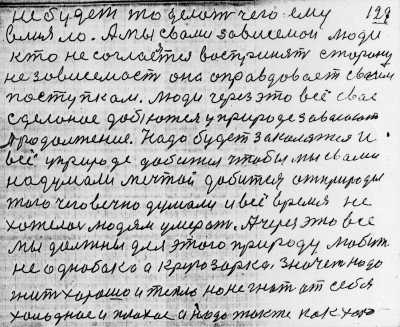 не будет то делат чего ему 129
влияло. А мы с вами зависемой люди
кто не соглается воспринят сторону
не зависемост она оправдовает своем
поступкам. Люди через это всё свае
сделоное добюжся у природе завоюют
продолжение. Надо будет закалятся и
всё у природе добится чтобы мы с вами
надумали мечтай добится от природы
того чего вечно думали и всё время не
хотелос людям умерат. А через это все
мы должны для этого природу любит
не однобако а кругозарко. Значет надо
жит хорошо и тепло но не гнат от себя
холодное и плохое и надо также как хоро